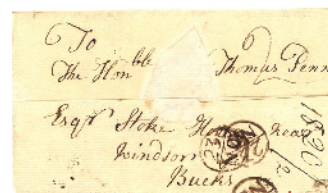 To
The Honble Thomas Penn
Esqr Stoke House near
Windsor
Bucks
23
NOV
1890